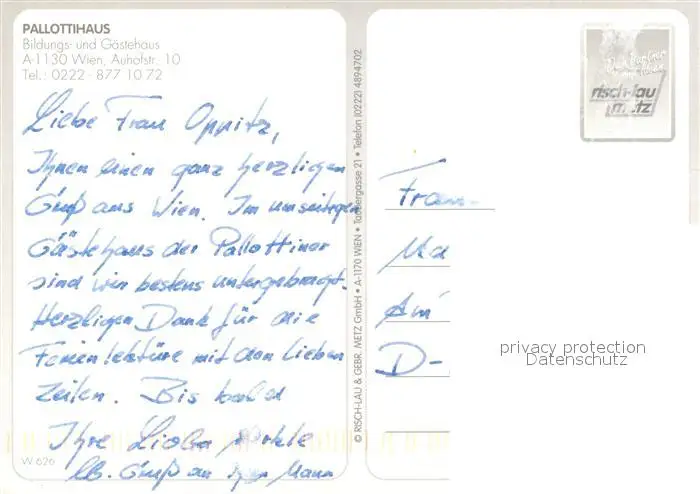 PALLOTTIHAUS
Bildungs- und Gästehaus
A-1130 Wien, Auhofstr. 10
Tel.: 0222 - 877 10 72
Liebe Frau Oppitz,
Ihnen einen ganz herzlichen
Gruß aus Wien. Im umseitigen
Gästehaus der Pallottiner
sind wir bestens untergebracht.
Herzlichen Dank für die
Ferienlektüre mit den lieben
Zeilen. Bis bald
Ihre Lioba
lb. Gruß an Ihren Mann
W 626
© RISCH-LAU & GEBR. METZ GmbH • A-1170 WIEN • Taubergasse 21 • Telefon (0222) 4894702
risch-lau
metz
Frau
Ma
Am
D-
privacy protection
Datenschutz